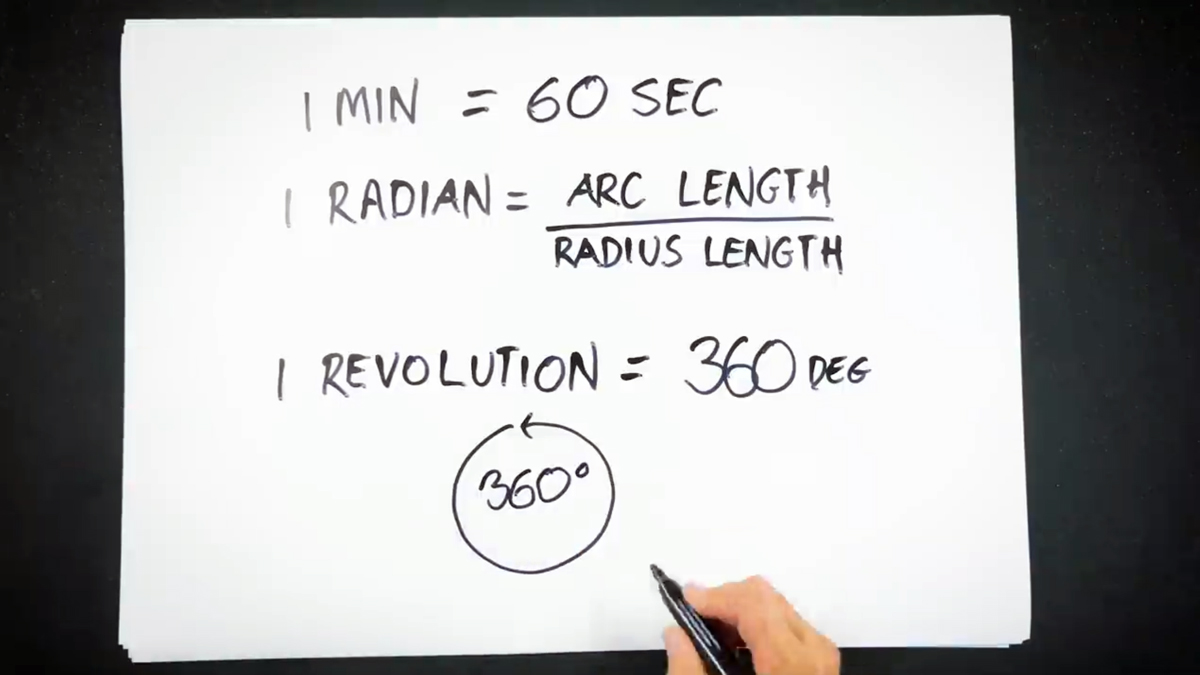 1 MIN = 60 SEC
1 RADIAN = ARC LENGTH
RADIUS LENGTH
1 REVOLUTION = 360 DEG
360°